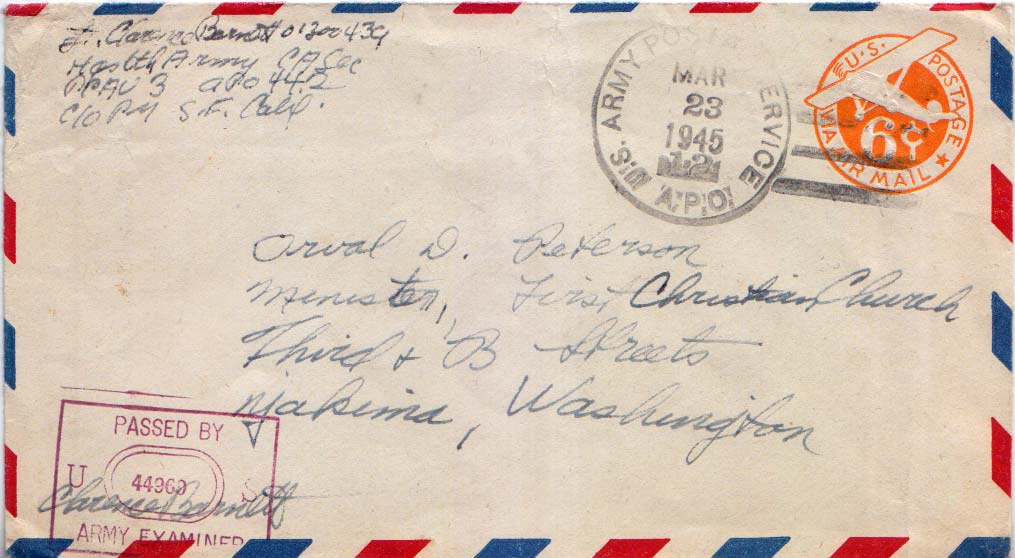 Lt. Clarence Barnett 01300439
Hq 8th Army CA Sec
PCAU 3 APO 442
C/O PM S.F. Calif.
ARMY POSTAL SERVICE
MAR
23
1945
12
U.S. A.P.O.
U.S. POSTAGE
6¢
VIA AIR MAIL
Orval D. Peterson
Minister, First Christian Church
Third + B Streets
Yakima, Washington
PASSED BY
U 44960 S
Clarence Barnett
ARMY EXAMINER